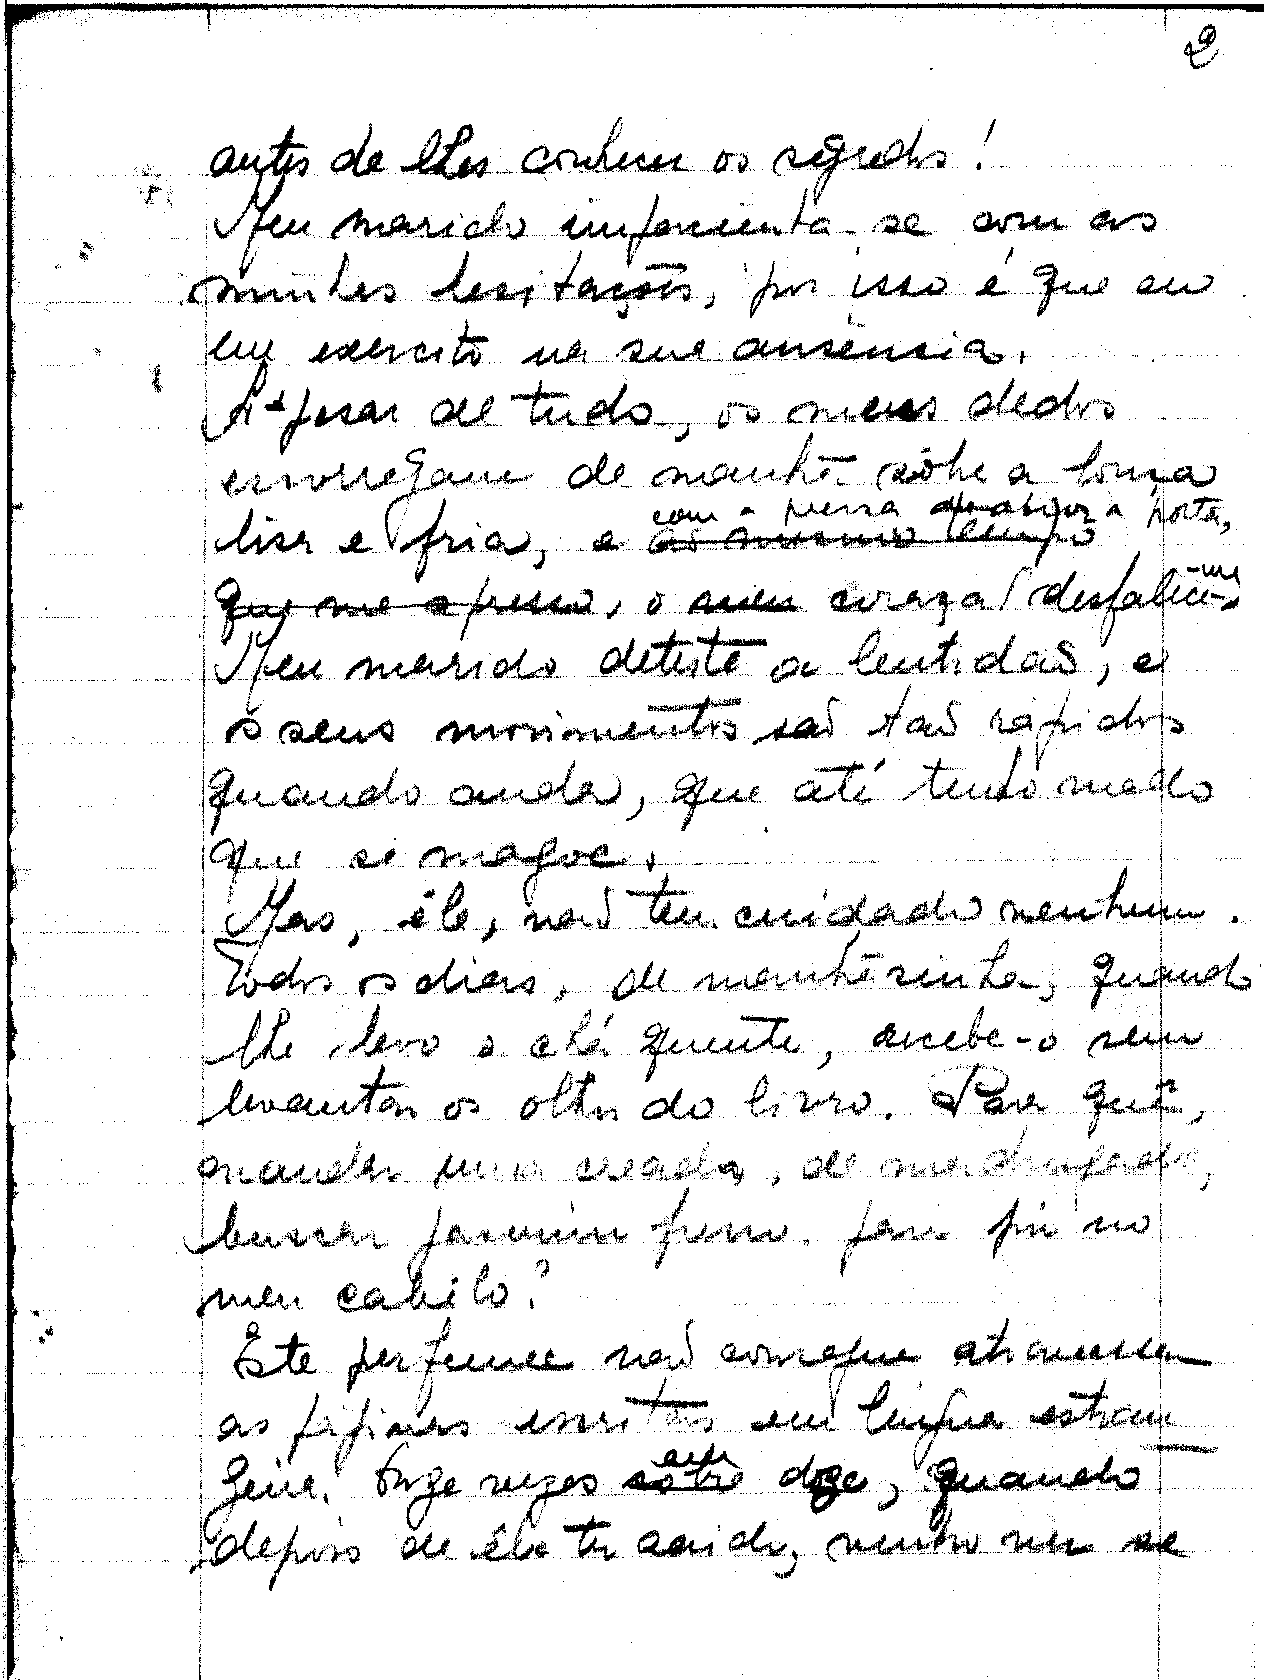 2
antes de lhes conhecer os segredos!
Meu marido impacienta-se com as
minhas hesitações, por isso é que eu
me exercito na sua ausência.
A-pesar de tudo, os meus dedos
escorregam de manhã sôbre a louça
com a pressa de abrir a porta,
lisa e fria, e ao mesmo tempo
que me apresso, o meu coração desfalece-me
Meu marido detesta a lentidão, e
os seus movimentos são tão rápidos
quando anda, que até tenho medo
que se magoe.
Mas, êle, não tem cuidado nenhum.
Todos os dias, de manhãzinha, quando
lhe levo o chá quente, recebe-o sem
levantar os olhos do livro. Para quê,
mandar uma creada, de madrugada,
buscar jasmim fresco para pôr no
meu cabelo?
Este perfume não consegue atravessar
as páginas escritas em língua estran
geira. Onze vezes em
sobre doze, quando
depois de êle ter saído, venho ver se